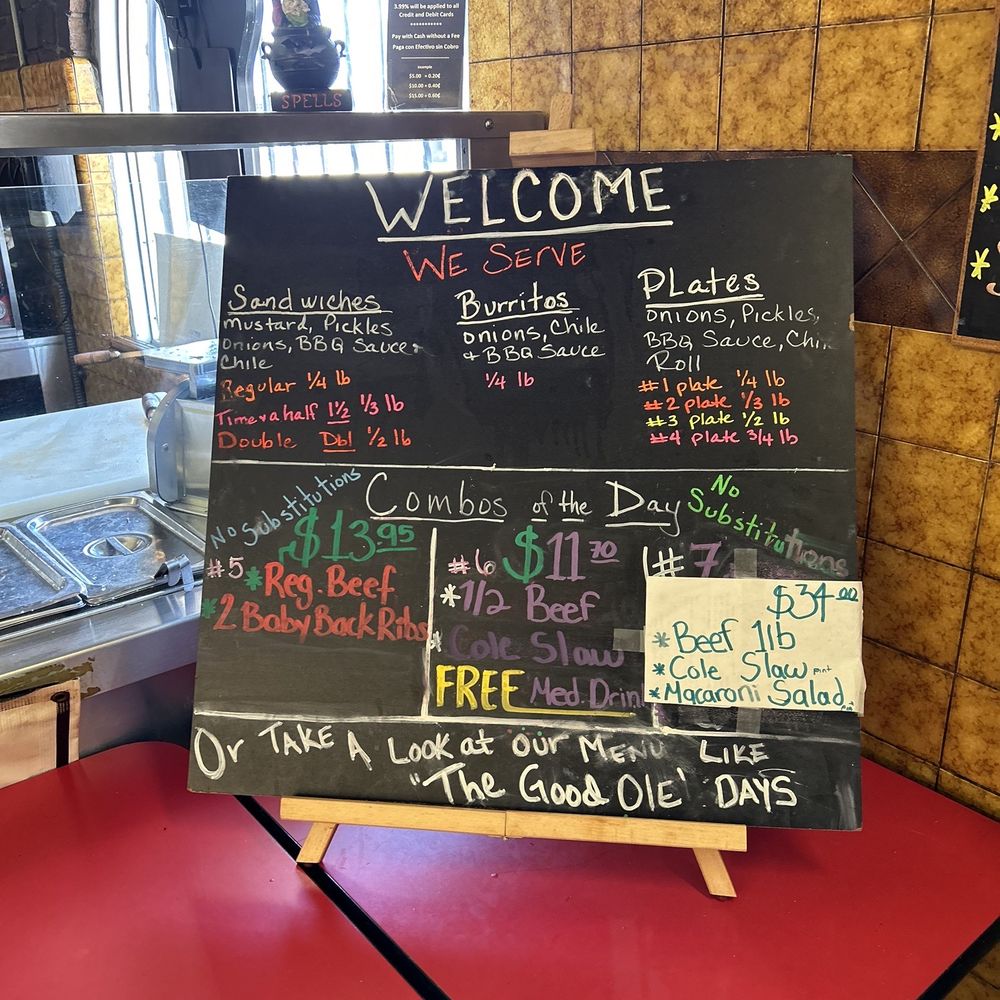 3.99% will be applied to all
Credit and Debit Cards
***********
Pay with Cash without a Fee
Paga con Efectivo sin Cobro
***********
example
$5.00 = 0.20¢
$10.00 = 0.40¢
$15.00 = 0.60¢
SPELLS
WELCOME
WE SERVE
Sandwiches
Mustard, Pickles
onions, BBQ Sauce +
Chile
Regular 1/4 lb
Time & a half 1 1/2 1/3 lb
Double Dbl 1/2 lb
Burritos
onions, Chile
+ BBQ Sauce
1/4 lb
PLates
onions, Pickles,
BBQ Sauce,
Roll
#1 plate 1/4 lb
#2 plate 1/3 lb
#3 plate 1/2 lb
#4 plate 3/4 lb
Combos of the Day
No Substitutions
$13.95
#5
*Reg. Beef
*2 Baby Back Ribs
#6 $11 70
*1/2 Beef
*Cole Slaw
FREE Med. Drin
No
Substitutions
#7
$34.00
* Beef 1lb
* Cole Slaw pint
* Macaroni Salad
Or TAKE A LOOK at our MENU LIKE
"The Good Ole' DAYS